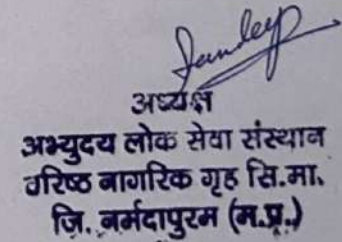 अध्यक्ष
अभ्युदय लोक सेवा संस्थान
वरिष्ठ नागरिक गृह सि.मा.
जि. नर्मदापुरम (म.प्र.)